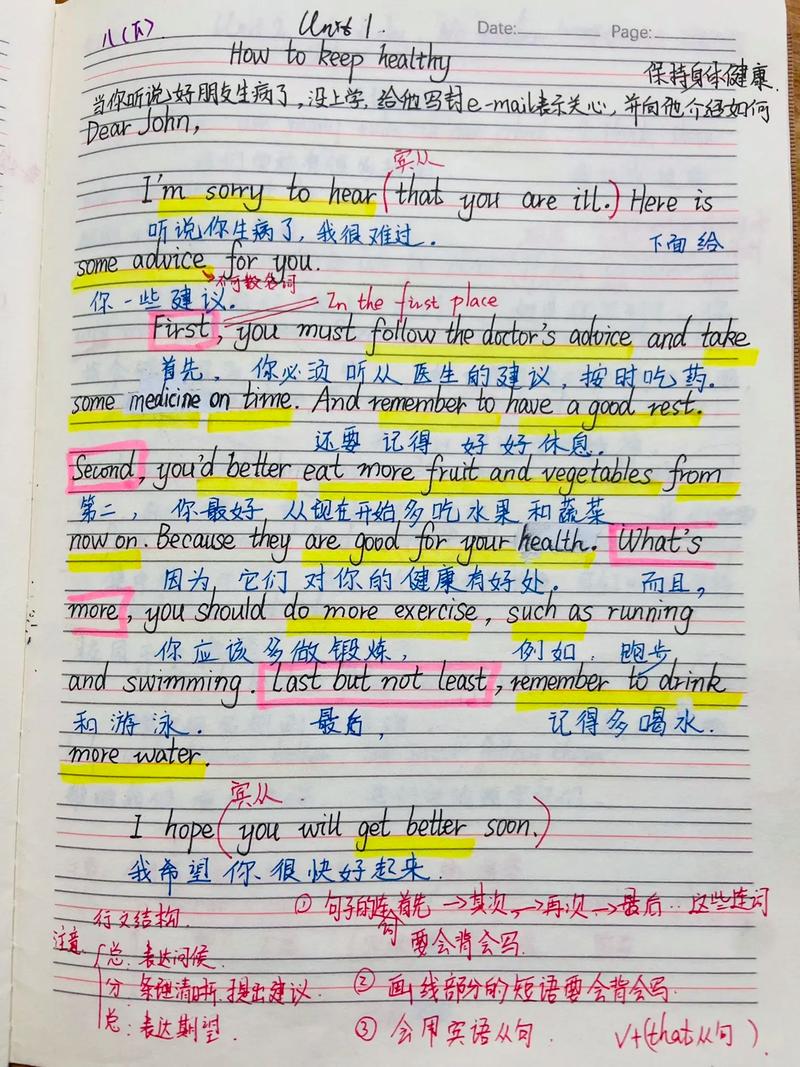 八(下) Unit 1. Date: Page:
How to keep healthy
保持身体健康.
当你听说好朋友生病了,没上学,给他写封e-mail表示关心,并向他介绍如何
Dear John,
宾从
I'm sorry to hear (that you are ill.) Here is
听说你生病了,我很难过. 下面给
some advice for you.
不可数名词
你一些建议. In the first place
First, you must follow the doctor's advice and take
首先, 你必须听从医生的建议,按时吃药.
some medicine on time. And remember to have a good rest.
还要记得 好好休息.
Second, you'd better eat more fruit and vegetables from
第二, 你最好 从现在开始多吃水果和蔬菜
now on. Because they are good for your health. What's
因为, 它们对你的健康有好处. 而且,
more, you should do more exercise, such as running
你应该多做锻炼, 例如. 跑步
and swimming. Last but not least, remember to drink
和游泳. 最后, 记得多喝水.
more water.
宾从
I hope (you will get better soon.)
我希望你很快好起来.
行文结构. ① 句子的连首先→其次→再次→最后..这些连词
句 要会背会写.
注意 总: 表达问候.
分 条理清晰,提出建议. ② 画线部分的短语要会背会写.
总: 表达期望. ③ 会用宾语从句. V+(that从句).